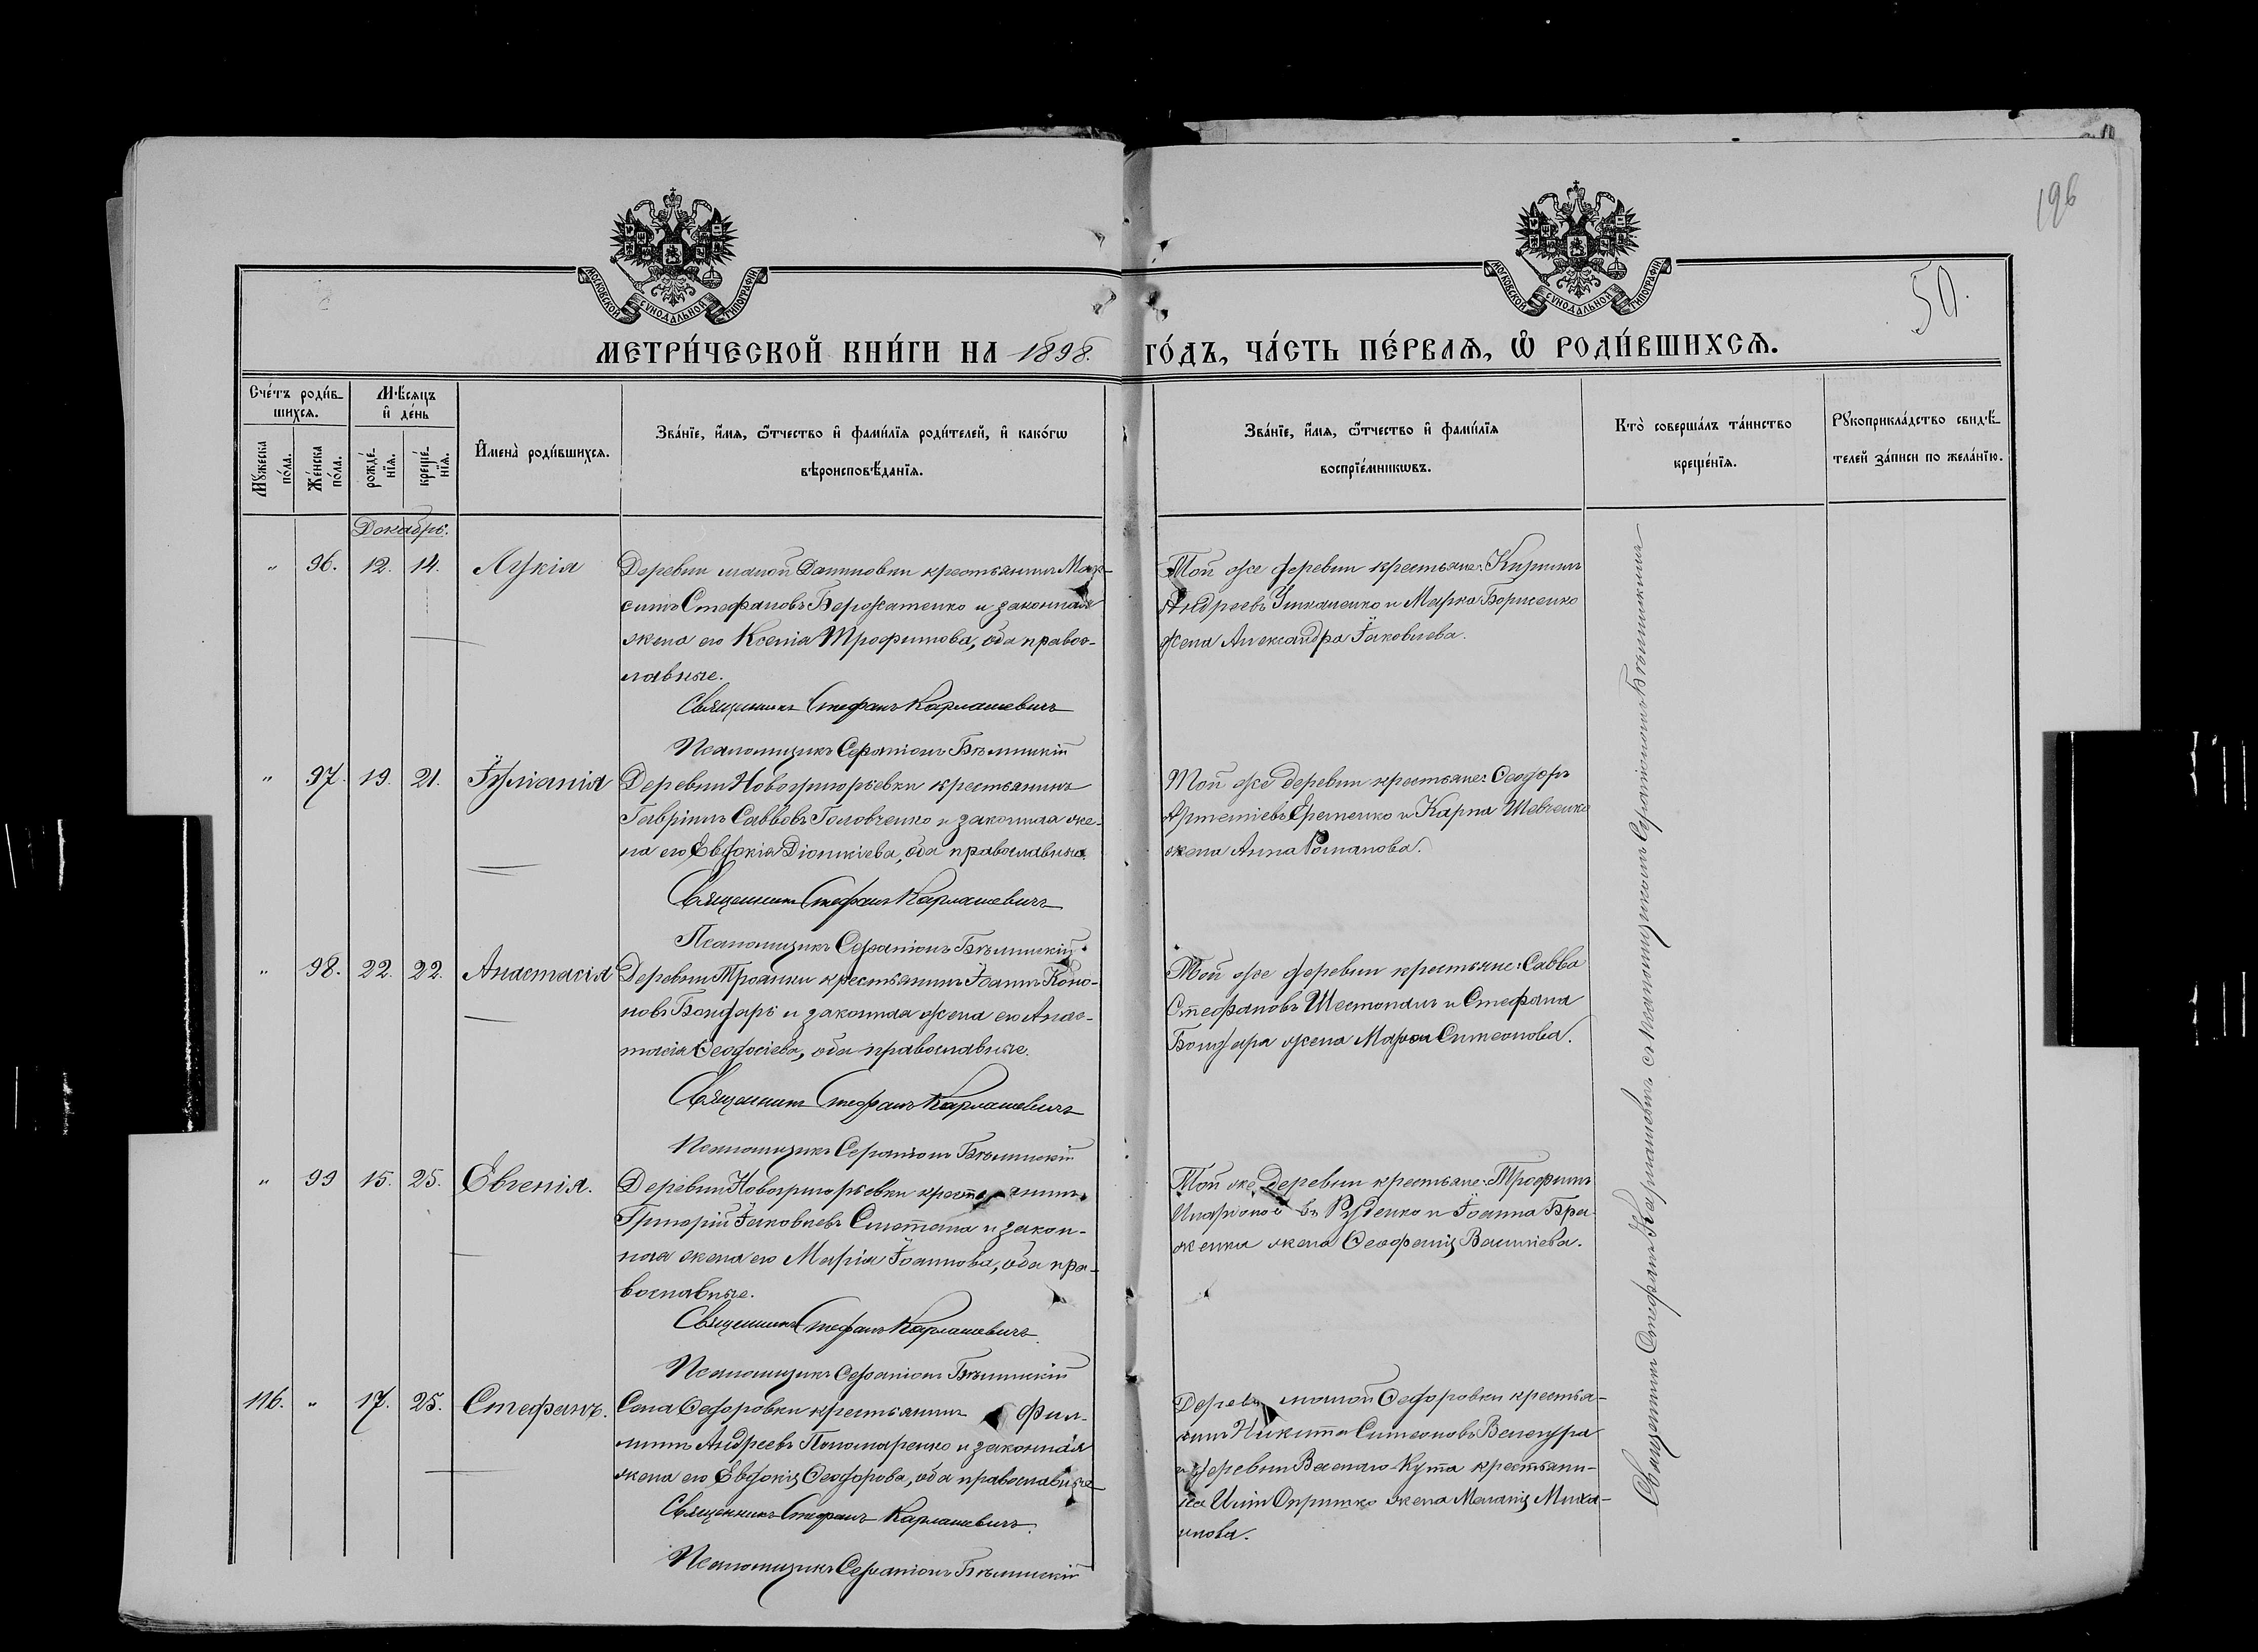 196
50.
МОСКОВСКОЙ СУНОДАЛЬНОЙ ТИПОГРАФІИ
МОСКОВСКОЙ СУНОДАЛЬНОЙ ТИПОГРАФІИ
МЕТРИ́ЧЕСКОЙ КНИ́ГИ НА 1898. ГО́ДЪ, ЧА́СТЬ ПЕ́РВАѦ, Ѽ РОДИ́ВШИХСѦ.
Счетъ роди́в-
шихсѧ.
Мѣсѧцъ
и҆ де́нь
Мꙋжеска
по́ла.
Же́нска
по́ла.
рожде́-
нїѧ.
креще́-
нїѧ.
И҆мена̀ роди́вшихсѧ.
Зва́нїе, и҆́мѧ, ѻ҆́тчество и҆ фами́лїѧ роди́телей, и҆ како́гѡ
вѣроисповѣ́данїѧ.
Зва́нїе, и҆́мѧ, ѻ҆́тчество и҆ фами́лїѧ
воспрїе́мникѡвъ.
Кто̀ соверша́лъ та́инство
креще́нїѧ.
Рꙋкоприкла́дство свидѣ́-
телей за́писи по жела́нїю.
Декабрь.
" 96. 12. 14. Лукія
Деревни малой Даниловки крестьянинъ Мак-
симъ Стефановъ Бережатенко и законная
жена его Ксенія Трофимова, оба правос-
лавные.
Священникъ Стефанъ Кармашевичъ
Псаломщикъ Серапіонъ Бѣлинскій
Той же деревни крестьяне: Кириллъ
Андреевъ и Марка Борисенко
жена Александра Іаковлева.
" 97. 19. 21. Іуліанія
Деревни Новогригорьевки крестьянинъ
Гавріилъ Саввовъ Головченко и законная же-
на его Евдокія Діонисіева, оба православные.
Священникъ Стефанъ Кармашевичъ
Псаломщикъ Серапіонъ Бѣлинскій
Той же деревни крестьяне: Ѳеодоръ
Артеміевъ Еременко и Карпа Шевченко
жена Анна Романова.
" 98. 22. 22. Анастасія
Деревни Троянки крестьянинъ Іоаннъ Коно-
новъ Бондарь и законная жена его Анас-
тасія Ѳеодосіева, оба православные.
Священникъ Стефанъ Кармашевичъ
Псаломщикъ Серапіонъ Бѣлинскій
Той же деревни крестьяне: Савва
Стефановъ Шестопалъ и Стефана
Бондаря жена Марѳа Симеонова.
" 99 15. 25. Евгенія.
Деревни Новогригорьевки крестьянинъ
Григорій Іаковлевъ Сметана и закон-
ная жена его Марія Іоаннова, оба пра-
вославные.
Священникъ Стефанъ Кармашевичъ
Псаломщикъ Серапіонъ Бѣлинскій
Той же деревни крестьяне: Трофимъ
Иларіоновъ Руденко и Іоанна Бра-
женка жена Ѳеофанія Васильева.
116. " 17. 25. Стефанъ.
Села Ѳедоровки крестьянинъ Фил-
липъ Андреевъ Пономаренко и законная
жена его Евдокія Ѳеодорова, оба православные
Священникъ Стефанъ Кармашевичъ
Псаломщикъ Серапіонъ Бѣлинскій
Деревни малой Ѳедоровки крестья-
нинъ Никита Симеоновъ Венгура
и деревни Веселаго-Кута крестьяни-
на Иліи Опришко жена Меланія Миха-
илова.
Священникъ Стефанъ Кармашевичъ съ псаломщикомъ Серапіономъ Бѣлинскимъ